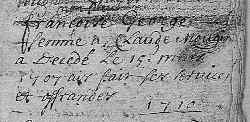 francoise George
femme a Claude Mougin
a decede Le 15: mars
1709 air fait ses services
et offrandes
1710